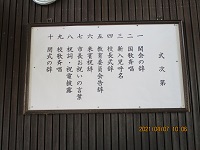 式次第
一 開会の辞
二 国歌斉唱
三 新入児呼名
四 校長式辞
五 教育委員会告辞
六 来賓祝辞
七 市長お祝いの言葉
八 祝詞・祝電披露
九 校歌斉唱
十 閉式の辞
2021/08/07 10:06